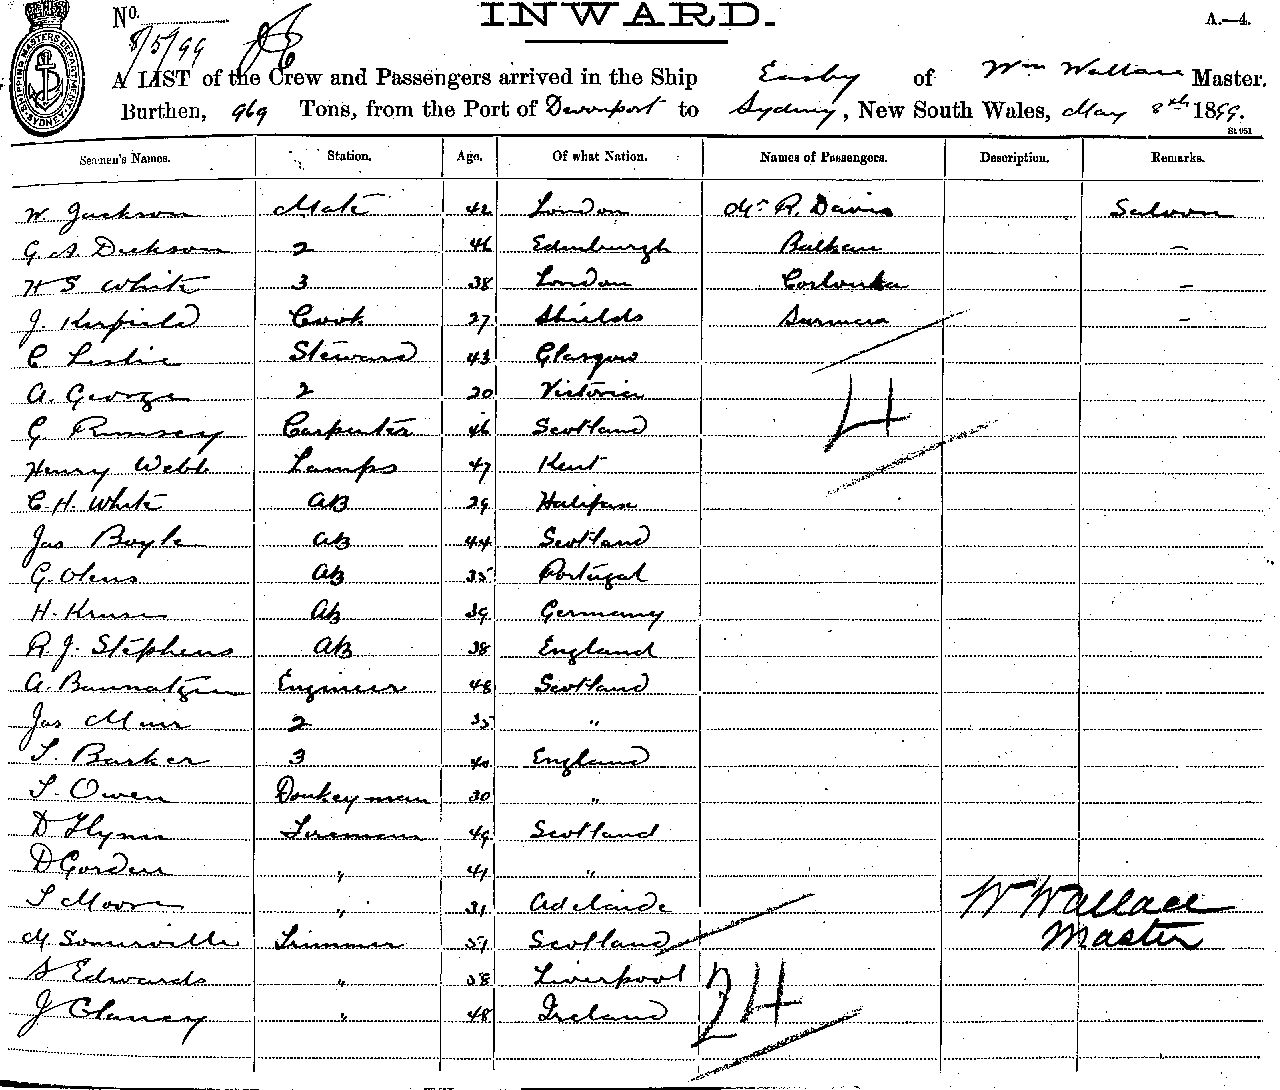 No. INWARD. A.—4.
8/5/99
A LIST of the Crew and Passengers arrived in the Ship Easby of Wm Wallace Master.
Burthen, 969 Tons, from the Port of Devonport to Sydney, New South Wales, May 8th 1899.
St 951
Seamen's Names. Station. Age. Of what Nation. Names of Passengers. Description. Remarks.
W. Jackson Mate 42 London Mr R. Davis Saloon
G A. Dickson 2 46 Edinburgh Balkau —
H S White 3 38 London –
J. Kerfield Cook 27 Shields –
C Leslie Steward 43 Glasgow
A. George 2 20 Victoria
G Rumsey Carpenter 46 Scotland 4
Henry Webb Lamps 47 Kent
C. H. White AB 29 Halifax
Jas Boyle AB 44 Scotland
G. Olens AB 35 Portugal
H. Kruse AB 39 Germany
R. J. Stephens AB 38 England
A. Bannatyne Engineer 48 Scotland
Jas Muir 2 35 "
T. Barker 3 40 England
T. Owen Donkeyman 30 "
D Flynn Fireman 49 Scotland
D Gordon " 41 "
T Moore " 31 Adelaide W Wallace
M Somerville Trimmer 51 Scotland Master
S Edwards " 38 Liverpool
J Clancy " 48 Ireland 24